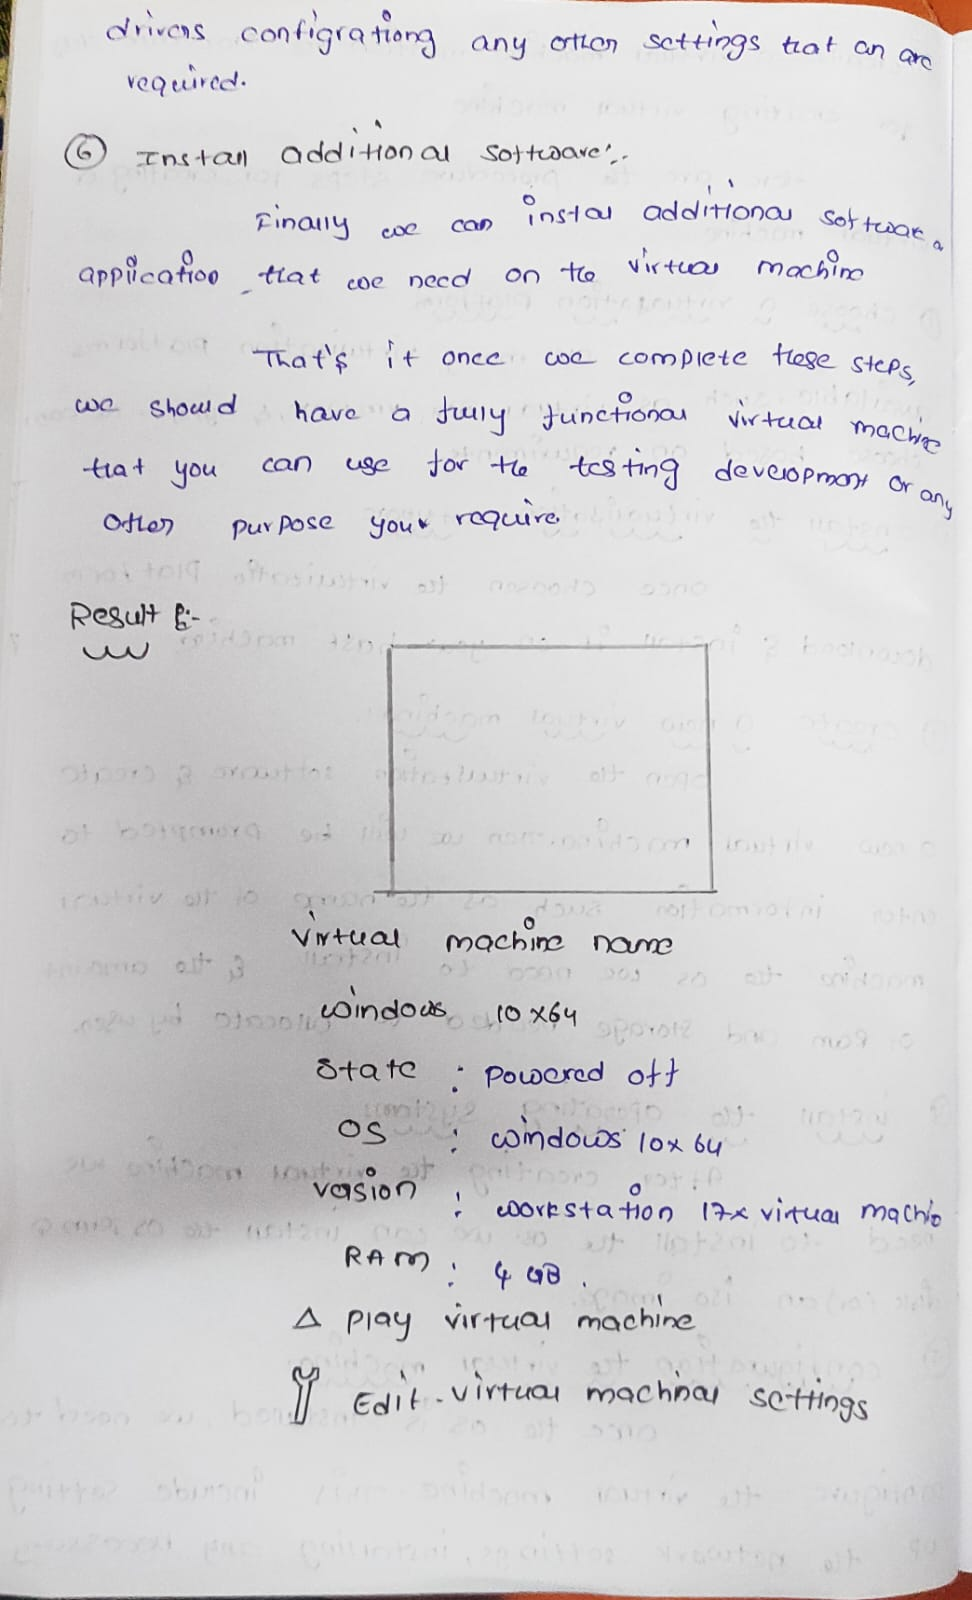 drivers configrationg any other settings that an are
required.
⑥ Install additional software:.
Finally we can instal additional software
application that we need on the virtual machine
That's it once we complete these steps,
we should have a fully functional virtual machine
that you can use for the testing development or any
other purpose you require
Result :-
Virtual machine name
windows 10 x64
State : powered off
OS : windows 10x 64
version : workstation 17x virtual machin
RAM : 4 GB.
△ play virtual machine
Edit virtual machinal settings